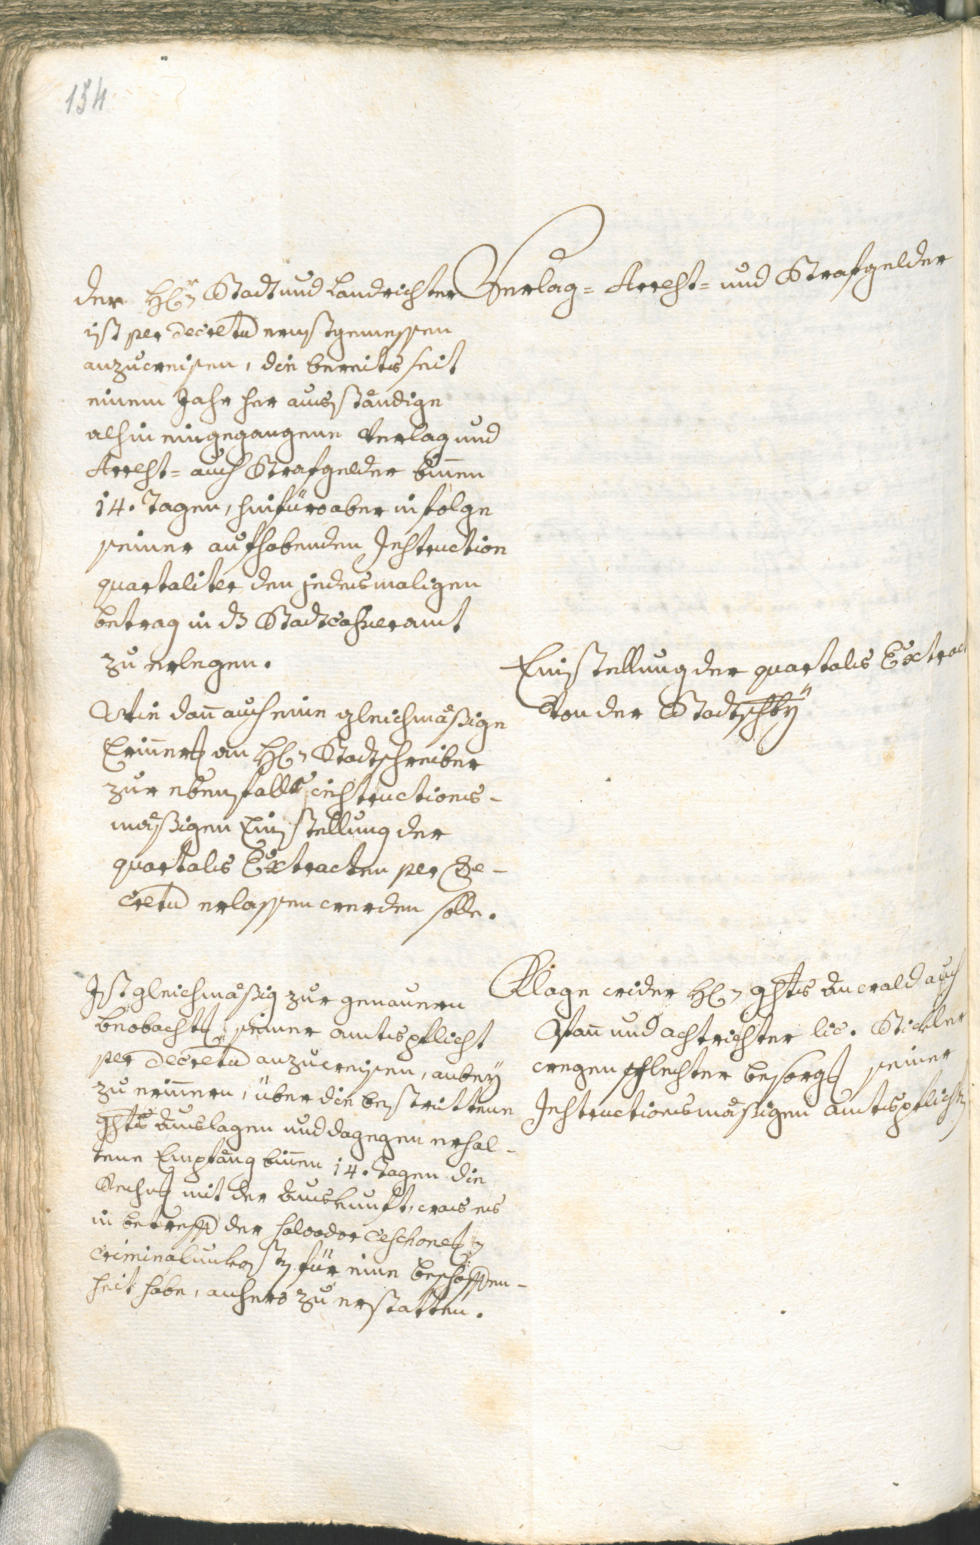 134
Verlag- Arrest- und Strafgelder
der H: Stadt und Landrichter
ist per Decretu ernstgemessen
anzuweisen, die bereits seit
einem Jahr her ausständige
alhin eingegangene Verlag und
Arrest- auch Strafgelder binnen
14. Tagen, hinfüro aber in folge
seiner aufhabenden Instruction
quartaliter den jedesmaligen
betrag in ds Stadtcasseramt
zu erlegen.
Einstellung der quartals Extract
von der Stadtschby
Wie dan auch eine gleichmäßige
Erinnerg an H: Stadtschreiber
zur ebenfalls instructions-
mäßigen Einstellung der
quartals Extracten per De-
cretu erlassen werden solle.
Klage wider H: ghts auch
Pann und achtrichter lic.
wegen schlechter besorgg seiner
Instructionsmäßigen Amtspflicht
Ist gleichmäßig zur genauern
beobachtg seiner amtspflicht
per Decretu anzuweisen, anbey
zu erinnern, über die bestrittene
ghts Auslagen und dagegen erhal-
tene Empfäng binnen 14. Tagen die
Rechng mit der Auskunft, was es
in betreff der
Criminalunkosten für eine beschaffen-
heit habe, anhero zu erstatten.